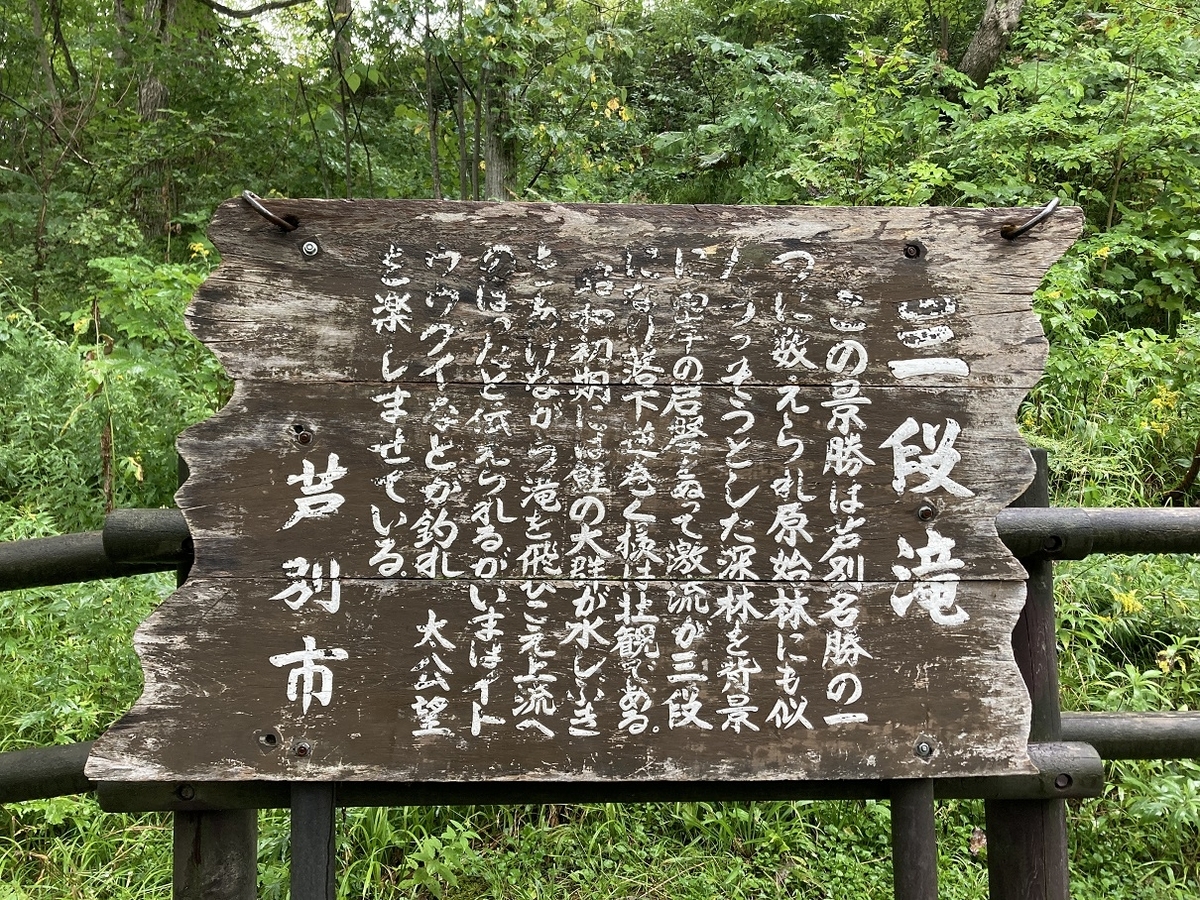 三段滝
この景勝は芦別名勝の一
つに数えられ原始林にも似
たうっそうとした深林を背景
に空知の岩磐をぬって激流が三段
になり落下逆巻く様は壮観である。
昭和初期には鮭の大群が水しぶき
をあげながら滝を飛びこえ上流へ
のぼったと伝えられるがいまはイト
ウウグイなどが釣れ 太公望
を楽しませている。
芦別市